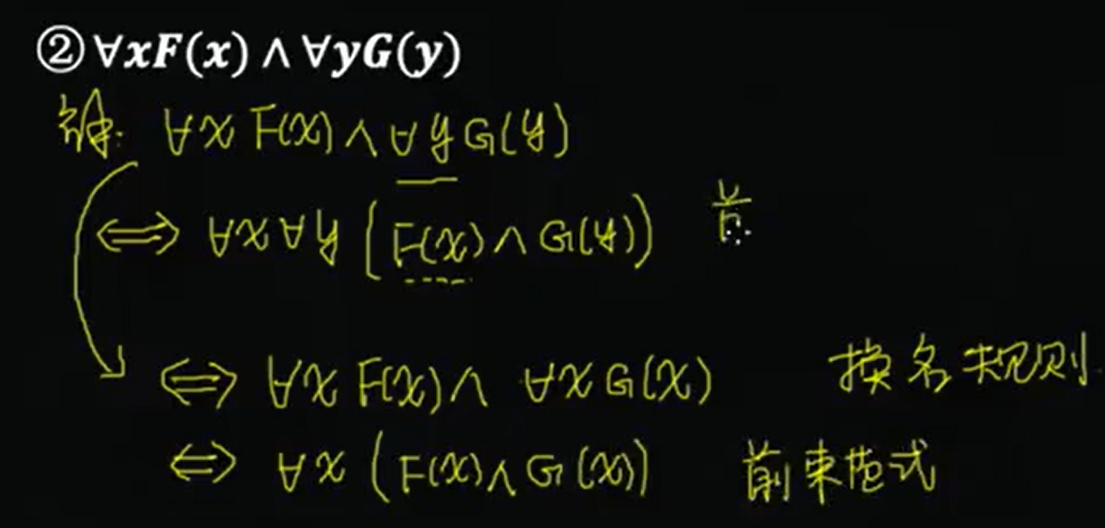 ②∀xF(x)∧∀yG(y)
解: ∀x F(x)∧∀y G(y)
⇔ ∀x∀y (F(x)∧G(y))
⇔ ∀x F(x)∧ ∀x G(x) 换名规则
⇔ ∀x (F(x)∧G(x)) 前束范式